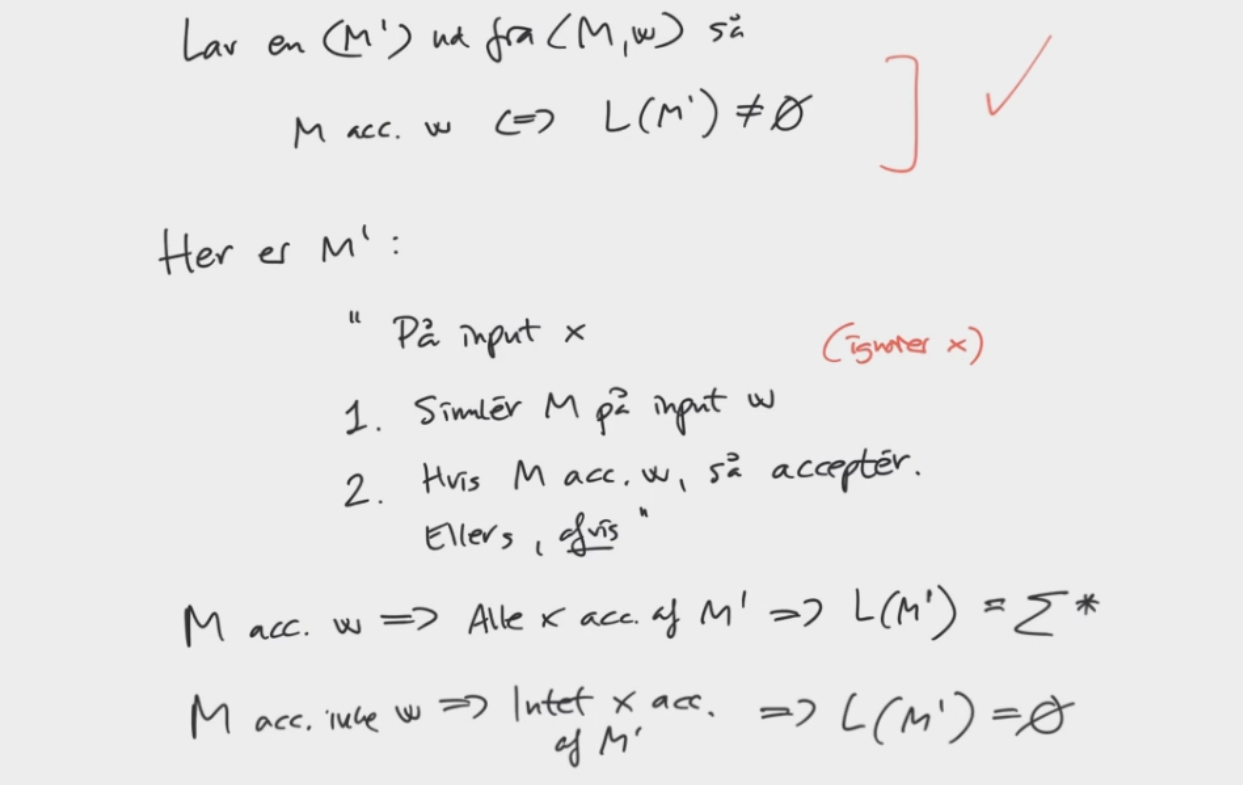 Lav en ⟨M'⟩ ud fra ⟨M,w⟩ så
M acc. w ⟺ L(M') ≠ ∅
Her er M':
" På input x (ignorer x)
1. Simulér M på input w
2. Hvis M acc. w, så acceptér.
Ellers, afvis "
M acc. w ⟹ Alle x acc. af M' ⟹ L(M') = Σ*
M acc. ikke w ⟹ Intet x acc. ⟹ L(M') = ∅
af M'